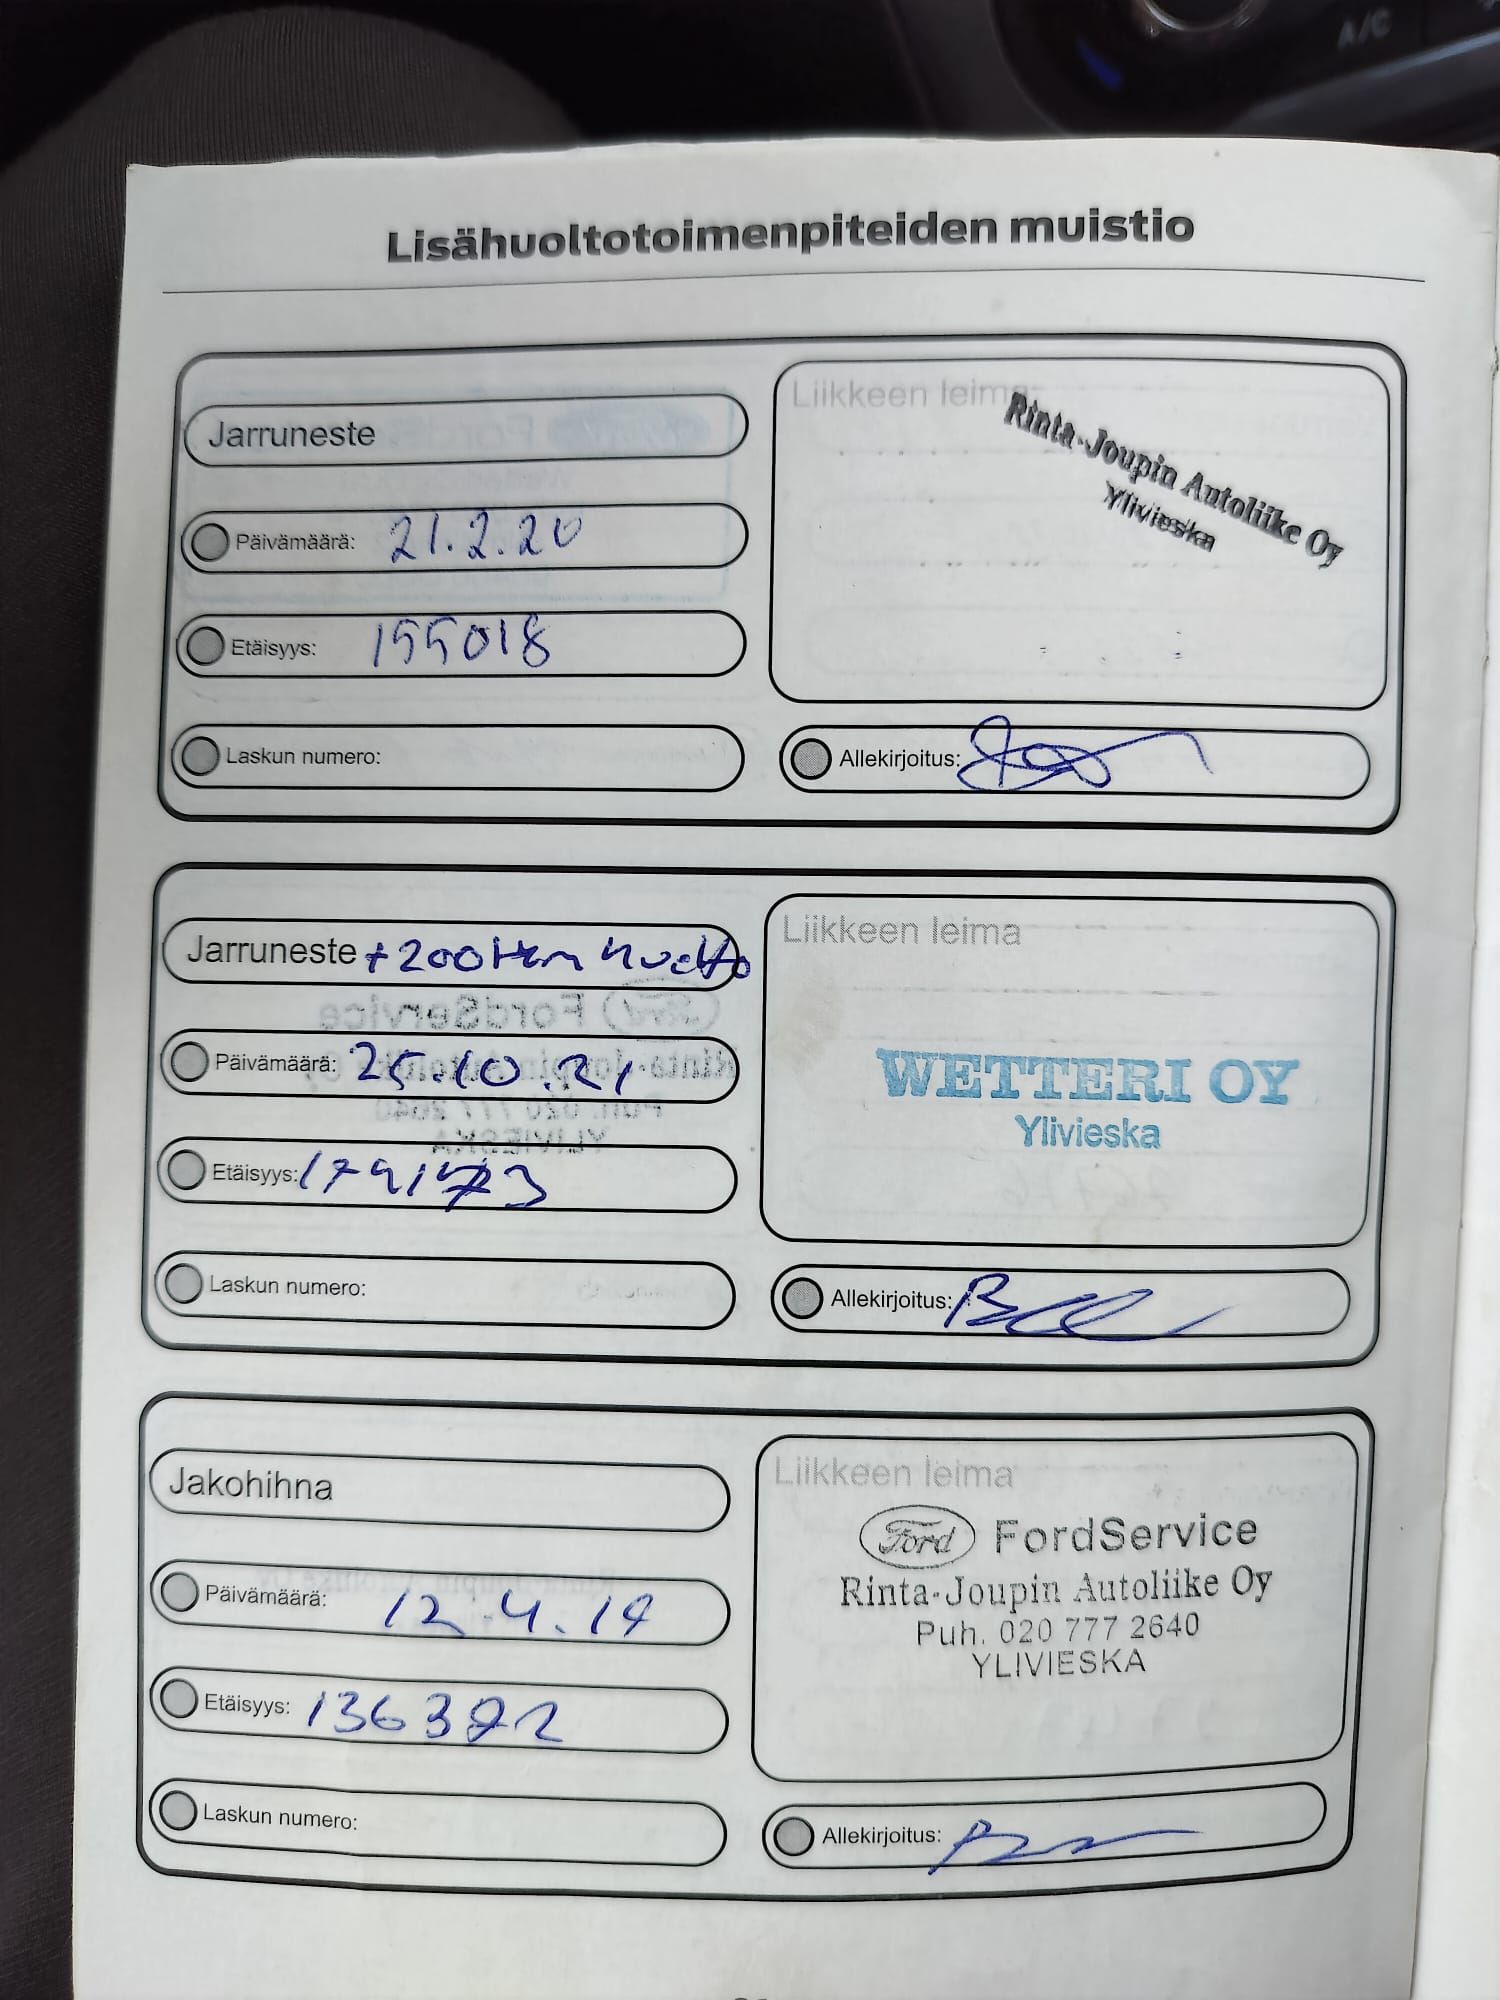 A/C
Lisähuoltotoimenpiteiden muistio
Jarruneste
Päivämäärä: 21.2.20
Etäisyys: 155018
Laskun numero:
Liikkeen leima
Rinta-Joupin Autoliike Oy
Ylivieska
Allekirjoitus:
Jarruneste + 200tkm huolto
Päivämäärä: 25.10.21
Etäisyys:
Laskun numero:
Liikkeen leima
WETTERI OY
Ylivieska
Allekirjoitus:
Jakohihna
Päivämäärä: 12.4.19
Etäisyys: 136392
Laskun numero:
Liikkeen leima
Ford FordService
Rinta-Joupin Autoliike Oy
Puh. 020 777 2640
YLIVIESKA
Allekirjoitus: